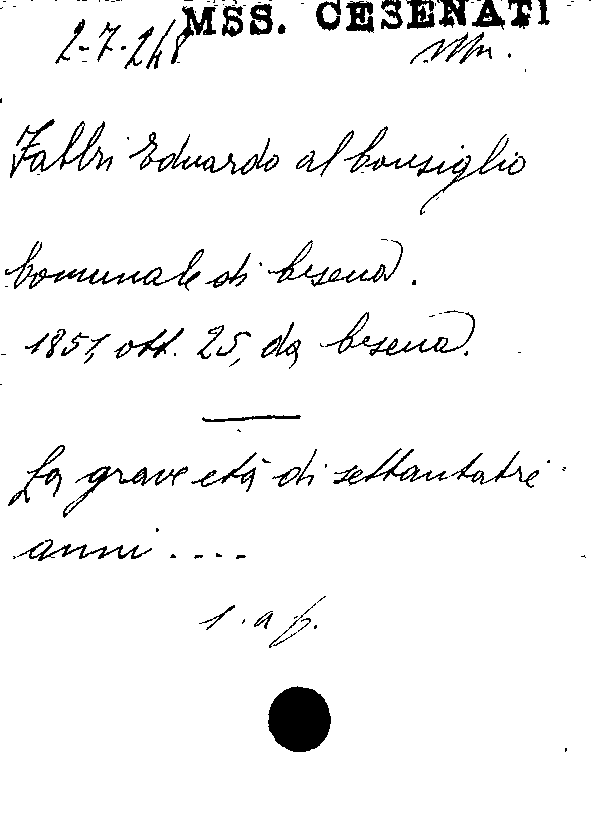 MSS. CESENATI
2-7-248 Mn.
Fabbri Eduardo al Consiglio
Comunale di Cesena.
1851, ott. 25, da Cesena.
La grave età di settantatrè
anni ....
l. a f.